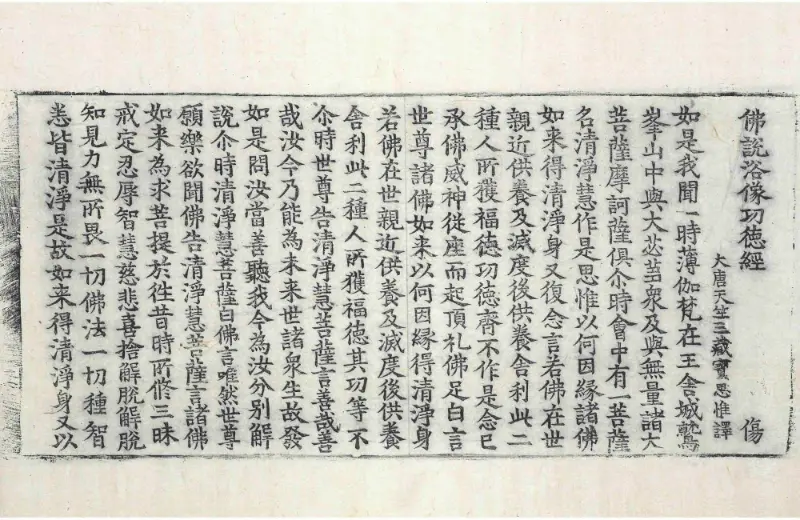 佛說浴像功德經 傷
大唐天竺三藏寶思惟譯
如是我聞一時薄伽梵在王舍城鷲
峯山中與大苾蒭衆及與無量諸大
菩薩摩訶薩俱尒時會中有一菩薩
名清淨慧作是思惟以何因縁諸佛
如来得清淨身又復念言若佛在世
親近供養及滅度後供養舍利此二
種人所獲福德功德齊不作是念已
承佛威神從座而起頂礼佛足白言
世尊諸佛如来以何因縁得清淨身
若佛在世親近供養及滅度後供養
舍利此二種人所獲福德其功等不
尒時世尊告清淨慧菩薩言善哉善
哉汝今乃能為未来世諸衆生故發
如是問汝當善聽我今為汝分別解
說尒時清淨慧菩薩白佛言唯然世尊
願樂欲聞佛告清淨慧菩薩言諸佛
如来為求菩提於徃昔時所修三昧
戒定忍辱智慧慈悲喜捨解脫解脫
知見力無所畏一切佛法一切種智
悉皆清淨是故如来得清淨身又以